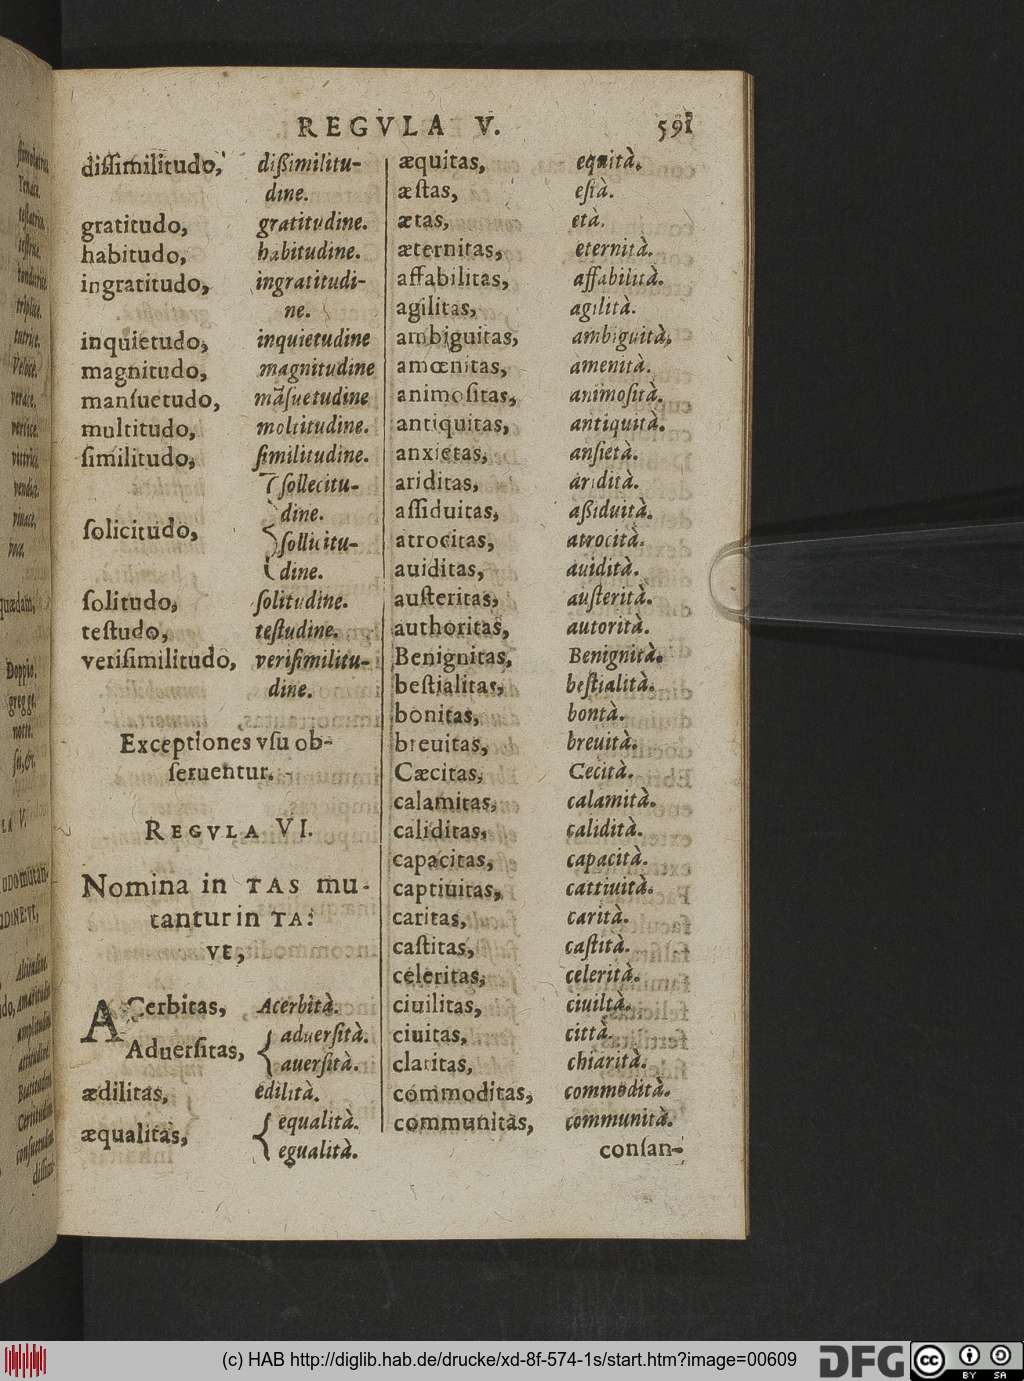 REGVLA V. 591
diſſimilitudo, dißimilitu-
dine.
gratitudo, gratitudine.
habitudo, habitudine.
ingratitudo, ingratitudi-
ne.
inquietudo, inquietudine
magnitudo, magnitudine
manſuetudo, mãſuetudine
multitudo, moltitudine.
ſimilitudo, ſimilitudine.
ſolicitudo, ſollecitu-
dine.
ſollicitu-
dine.
ſolitudo, ſolitudine.
teſtudo, teſtudine.
veriſimilitudo, veriſimilitu-
dine.
Exceptiones vſu ob-
ſeruentur.
REGVLA VI.
Nomina in TAS mu-
tantur in TA:
VT,
ACerbitas, Acerbità.
Aduerſitas, aduerſità.
auerſità.
ædilitas, edilità.
æqualitas, equalità.
egualità.
æquitas, equità.
æſtas, eſtà.
ætas, età.
æternitas, eternità.
affabilitas, affabilità.
agilitas, agilità.
ambiguitas, ambiguità.
amœnitas, amenità.
animoſitas, animoſità.
antiquitas, antiquità.
anxietas, anſietà.
ariditas, aridità.
aſſiduitas, aßiduità.
atrocitas, atrocità.
auiditas, auidità.
auſteritas, auſterità.
authoritas, autorità.
Benignitas, Benignità.
beſtialitas, beſtialità.
bonitas, bontà.
breuitas, breuità.
Cæcitas, Cecità.
calamitas, calamità.
caliditas, calidità.
capacitas, capacità.
captiuitas, cattiuità.
caritas, carità.
caſtitas, caſtità.
celeritas, celerità.
ciuilitas, ciuiltà.
ciuitas, città.
claritas, chiarità.
commoditas, commodità.
communitas, communità.
conſan-
(c) HAB http://diglib.hab.de/drucke/xd-8f-574-1s/start.htm?image=00609
DFG
cc BY SA